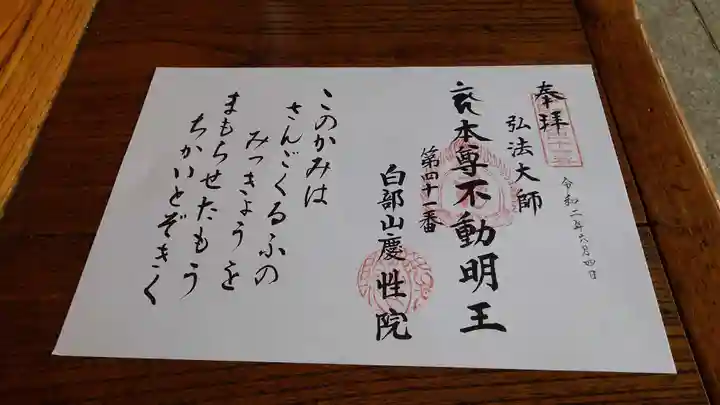 奉拝
弘法大師
本尊不動明王
第四十一番
白部山慶性院
令和二年六月四日
このかみは
さんごくるふの
みつきょうを
まもらせたもう
ちかいとぞきく